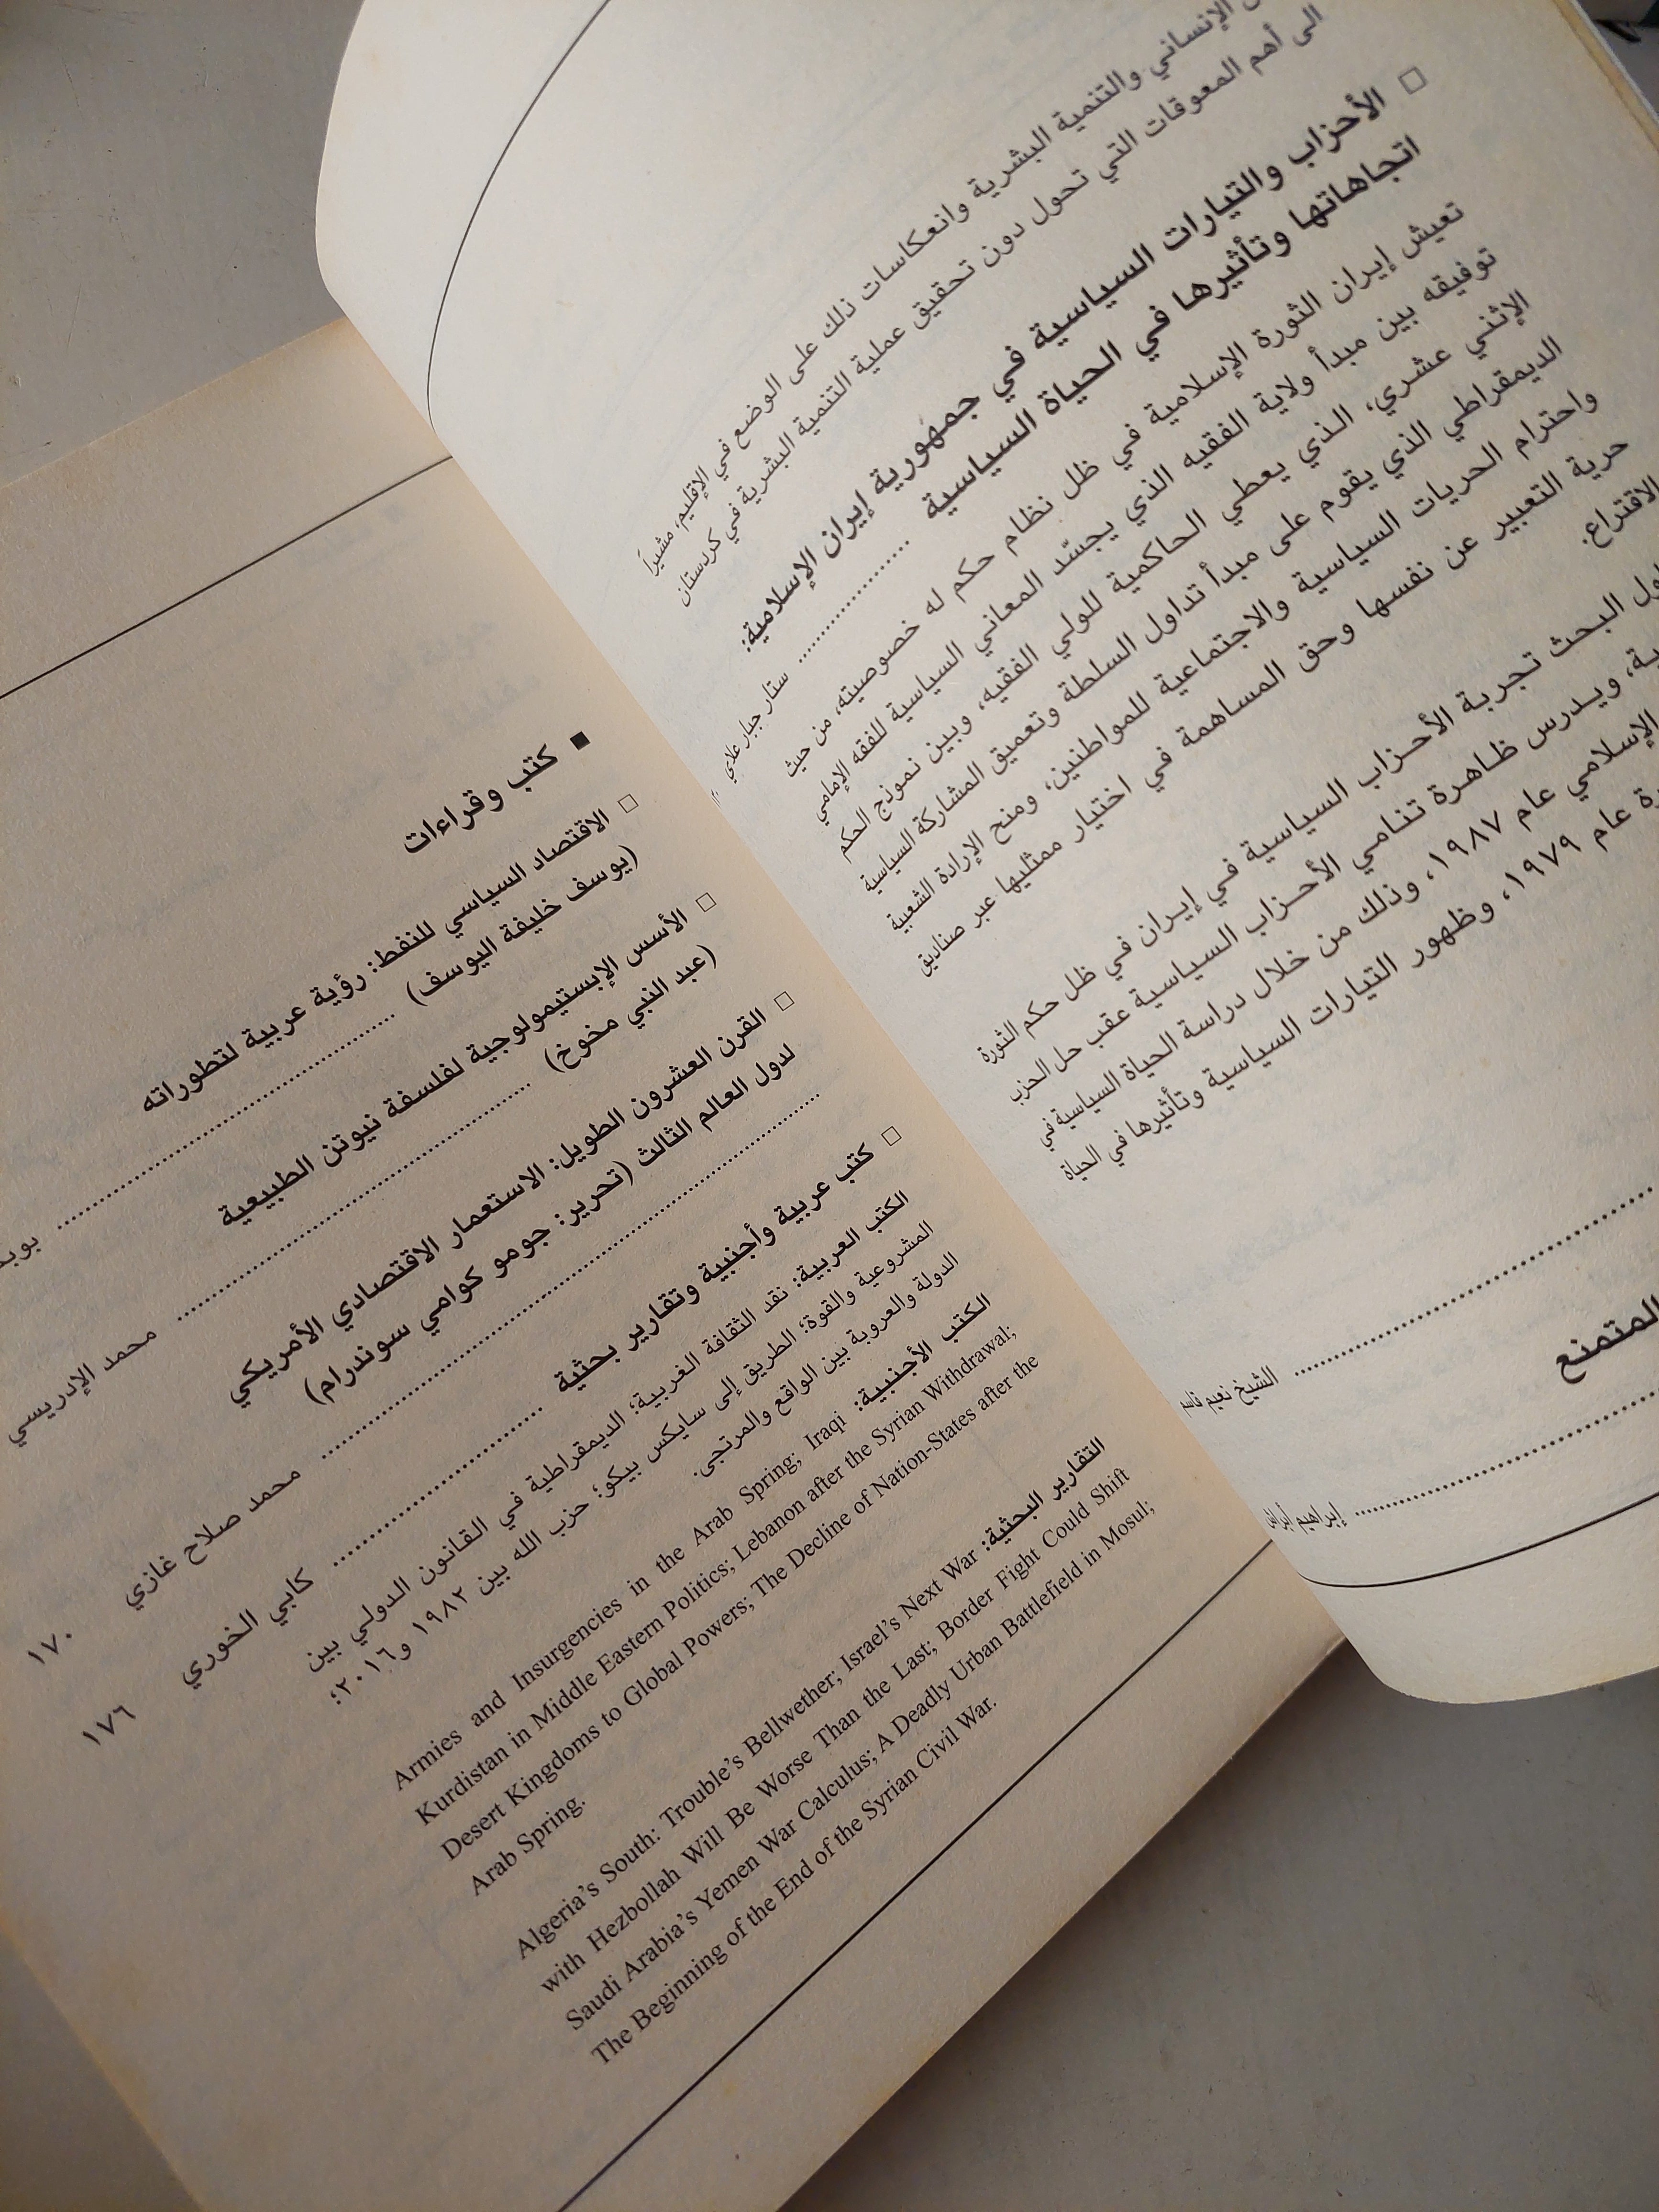 الإنساني والتنمية البشرية وانعكاسات ذلك على الوضع في الإقليم، مشيراً
الى أهم المعوقات التي تحول دون تحقيق عملية التنمية البشرية في كردستان
□ الأحزاب والتيارات السياسية في جمهورية إيران الإسلامية:
اتجاهاتها وتأثيرها في الحياة السياسية .................... ستار جبار علاي
تعيش إيران الثورة الإسلامية في ظل نظام حكم له خصوصيته، من حيث
توفيقه بين مبدأ ولاية الفقيه الذي يجسّد المعاني السياسية للفقه الإمامي
الإثني عشري، الذي يعطي الحاكمية للولي الفقيه، وبين نموذج الحكم
الديمقراطي الذي يقوم على مبدأ تداول السلطة وتعميق المشاركة السياسية
واحترام الحريات السياسية والاجتماعية للمواطنين، ومنح الإرادة الشعبية
حرية التعبير عن نفسها وحق المساهمة في اختيار ممثليها عبر صناديق
الاقتراع.
البحث تجربة الأحزاب السياسية في إيران في ظل حكم الثورة
ويدرس ظاهرة تنامي الأحزاب السياسية عقب حل الحزب
الإسلامي عام ١٩٨٧، وذلك من خلال دراسة الحياة السياسية في
عام ١٩٧٩، وظهور التيارات السياسية وتأثيرها في الحياة
.................... الشيخ نعيم قاسم
المتمنع
.................... إبراهيم
■ كتب وقراءات
□ الاقتصاد السياسي للنفط: رؤية عربية لتطوراته
(يوسف خليفة اليوسف) ....................
□ الأسس الإبستيمولوجية لفلسفة نيوتن الطبيعية
(عبد النبي مخوخ) .................... محمد الإدريسي
□ القرن العشرون الطويل: الاستعمار الاقتصادي الأمريكي
لدول العالم الثالث (تحرير: جومو كوامي سوندرام)
.................... محمد صلاح غازي ١٧٠
□ كتب عربية وأجنبية وتقارير بحثية .................... كابي الخوري ١٧٦
الكتب العربية: نقد الثقافة الغربية؛ الديمقراطية في القانون الدولي بين
المشروعية والقوة؛ الطريق إلى سايكس بيكو؛ حزب الله بين ١٩٨٢ و٢٠١٦؛
الدولة والعروبة بين الواقع والمرتجى.
الكتب الأجنبية: Armies and Insurgencies in the Arab Spring; Iraqi
Kurdistan in Middle Eastern Politics; Lebanon after the Syrian Withdrawal;
Desert Kingdoms to Global Powers; The Decline of Nation-States after the
Arab Spring.
التقارير البحثية: Algeria's South: Trouble's Bellwether; Israel's Next War
with Hezbollah Will Be Worse Than the Last; Border Fight Could Shift
Saudi Arabia's Yemen War Calculus; A Deadly Urban Battlefield in Mosul;
The Beginning of the End of the Syrian Civil War.